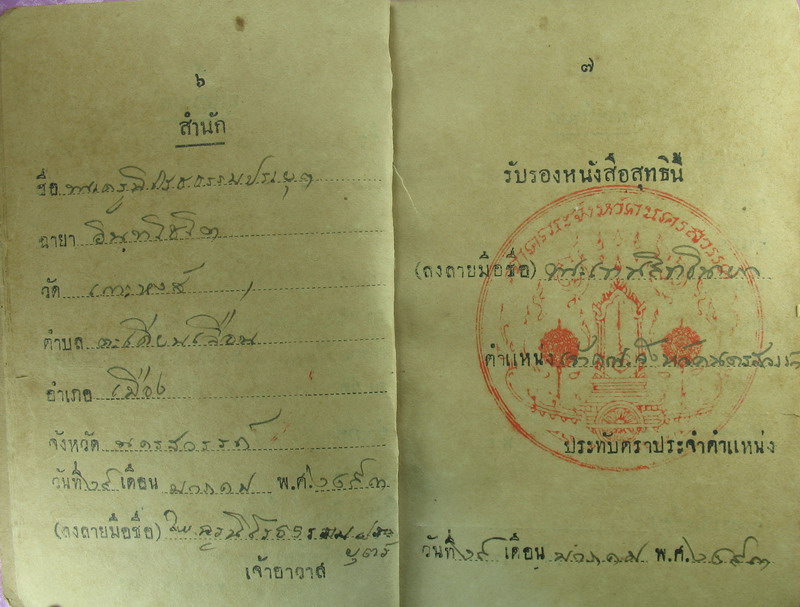 ๖
สำนัก
ชื่อ พระครูนิโรธธรรมประยุต
ฉายา อินฺทโชโต
วัด เกาะหงส์
ตำบล ตะเคียนเลื่อน
อำเภอ เมือง
จังหวัด นครสวรรค์
วันที่ ๒๙ เดือน มกราคม พ.ศ. ๒๔๙๓
(ลงลายมือชื่อ)
เจ้าอาวาส
๗
รับรองหนังสือสุทธินี้
(ลงลายมือชื่อ) พระเทพสิทธินายก
ตำแหน่ง
ประทับตราประจำตำแหน่ง
วันที่ ๒๙ เดือน มกราคม พ.ศ. ๒๔๙๓